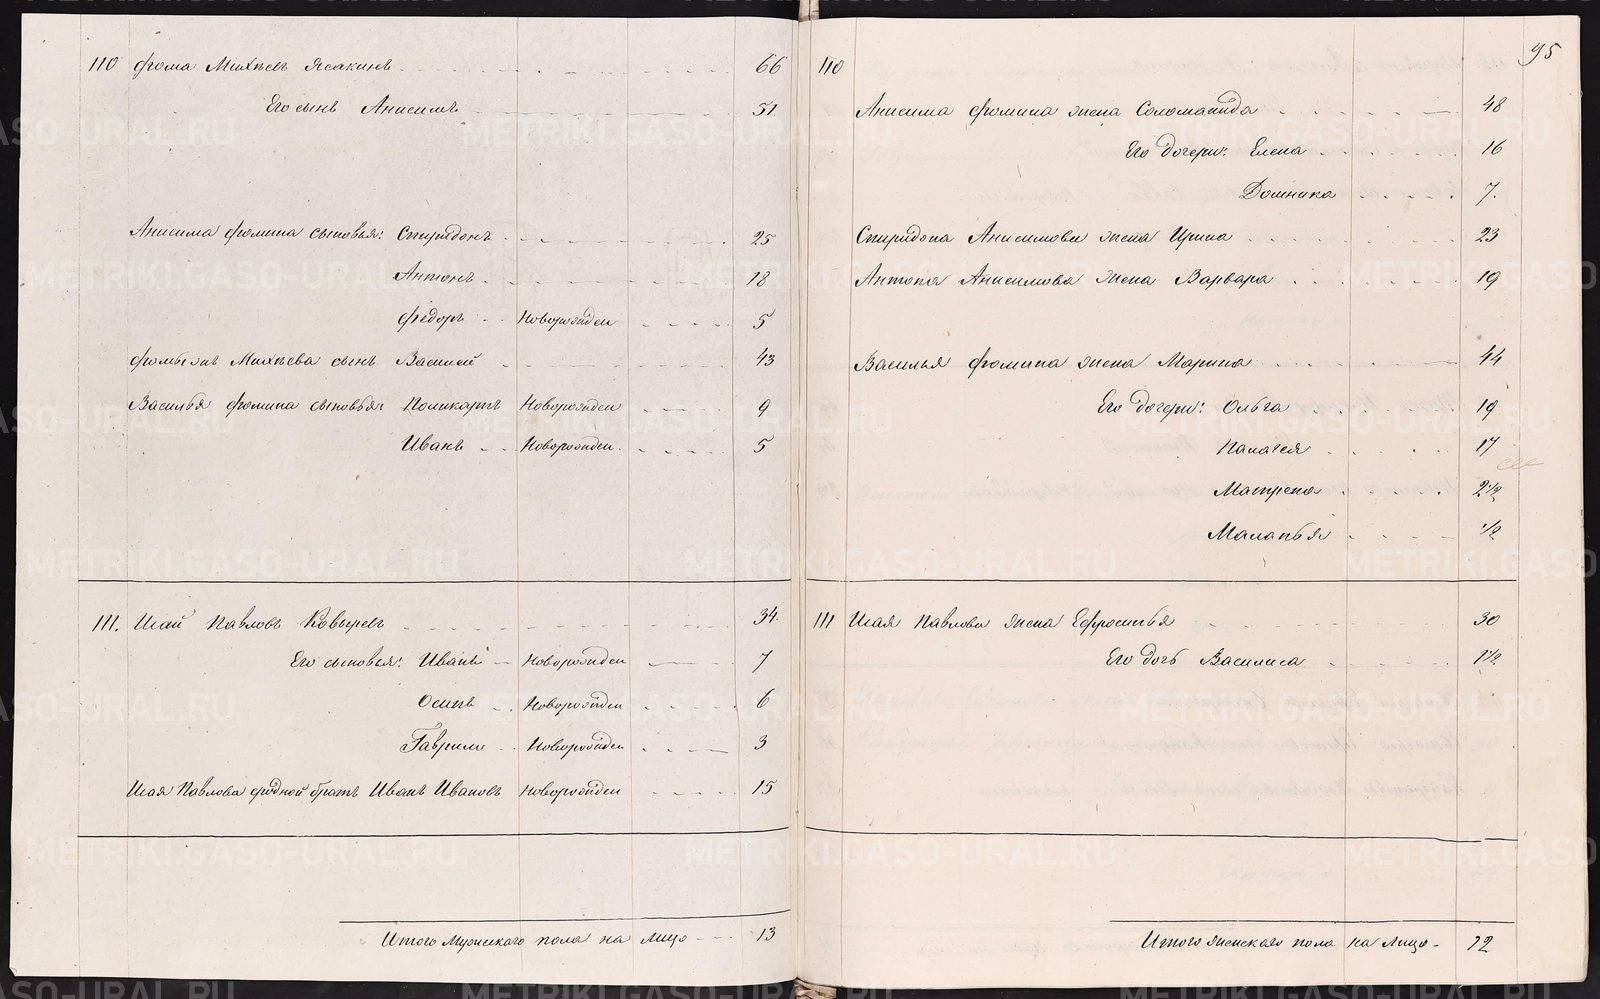 95
110 Фома Михѣевъ Ясакинъ 66
Его сынъ Анисимъ 51
Анисима Фомина сыновья: Спиридонъ 25
Антонъ 18
Федоръ Новорожден 5
Фомы же Михѣева сынъ Василей 43
Василья Фомина сыновья: Поликарпъ Новорожден 9
Иванъ Новорожден 5
111. Исай Павловъ Ковыревъ 34.
Его сыновья: Иванъ Новорожден 7
Осипъ Новорожден 6
Гаврило Новорожден 3
Исая Павлова родной братъ Иванъ Ивановъ Новорожден 15
Итого Мужескаго пола на лицо 13
110
Анисима Фомина жена Соломанида 48
Его дочери: Елена 16
Домника 7.
Спиридона Анисимова жена Ирина 23
Антона Анисимова жена Варвара 19
Василья Фомина жена Марина 44
Его дочери: Ольга 19
Палагея 17
Матрена 2 1/2
Маланья 1/2
111 Исая Павлова жена Ефросинья 30
Его дочь Василиса 1 1/2
Итого женскаго пола на лицо 12
METRIKI.GASO-URAL.RU